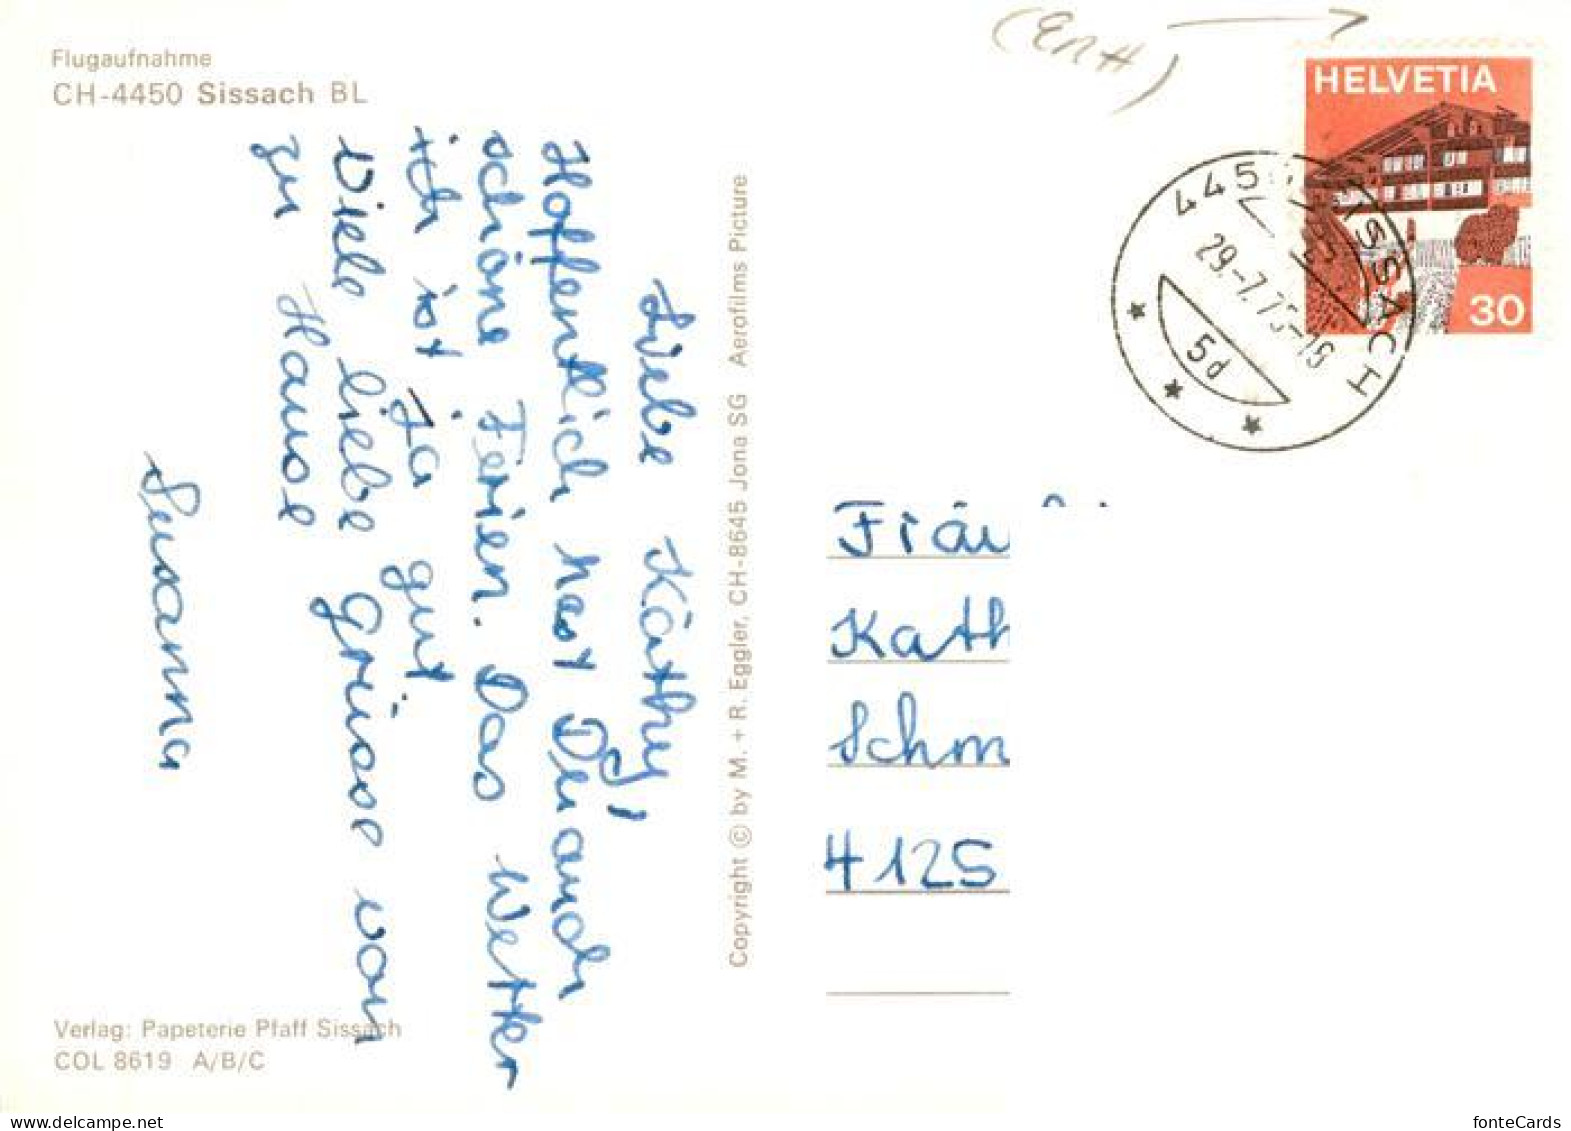 Flugaufnahme
CH-4450 Sissach BL
Liebe Käthy,
Hoffentlich hast Du auch
schöne Ferien. Das Wetter
ist ja gut
Viele liebe Grüsse von
zu Hause
Susanna
Copyright © by M. + R. Eggler, CH-8645 Jona SG Aerofilms Picture
Verlag: Papeterie Pfaff Sissach
COL 8619 A/B/C
HELVETIA
30
4450 SISSACH
29.-7.75-19
5d
Fräu
Kath
Schm
4125
fonteCards